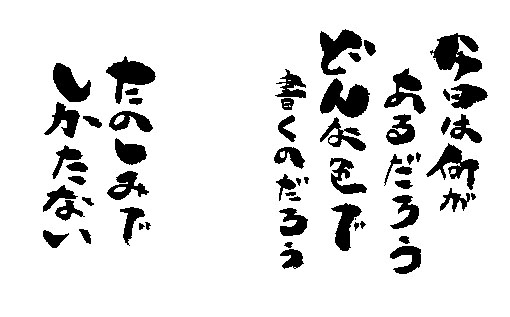 今日は何が
あるだろう
どんな色で
書くのだろう
たのしみで
しかたない